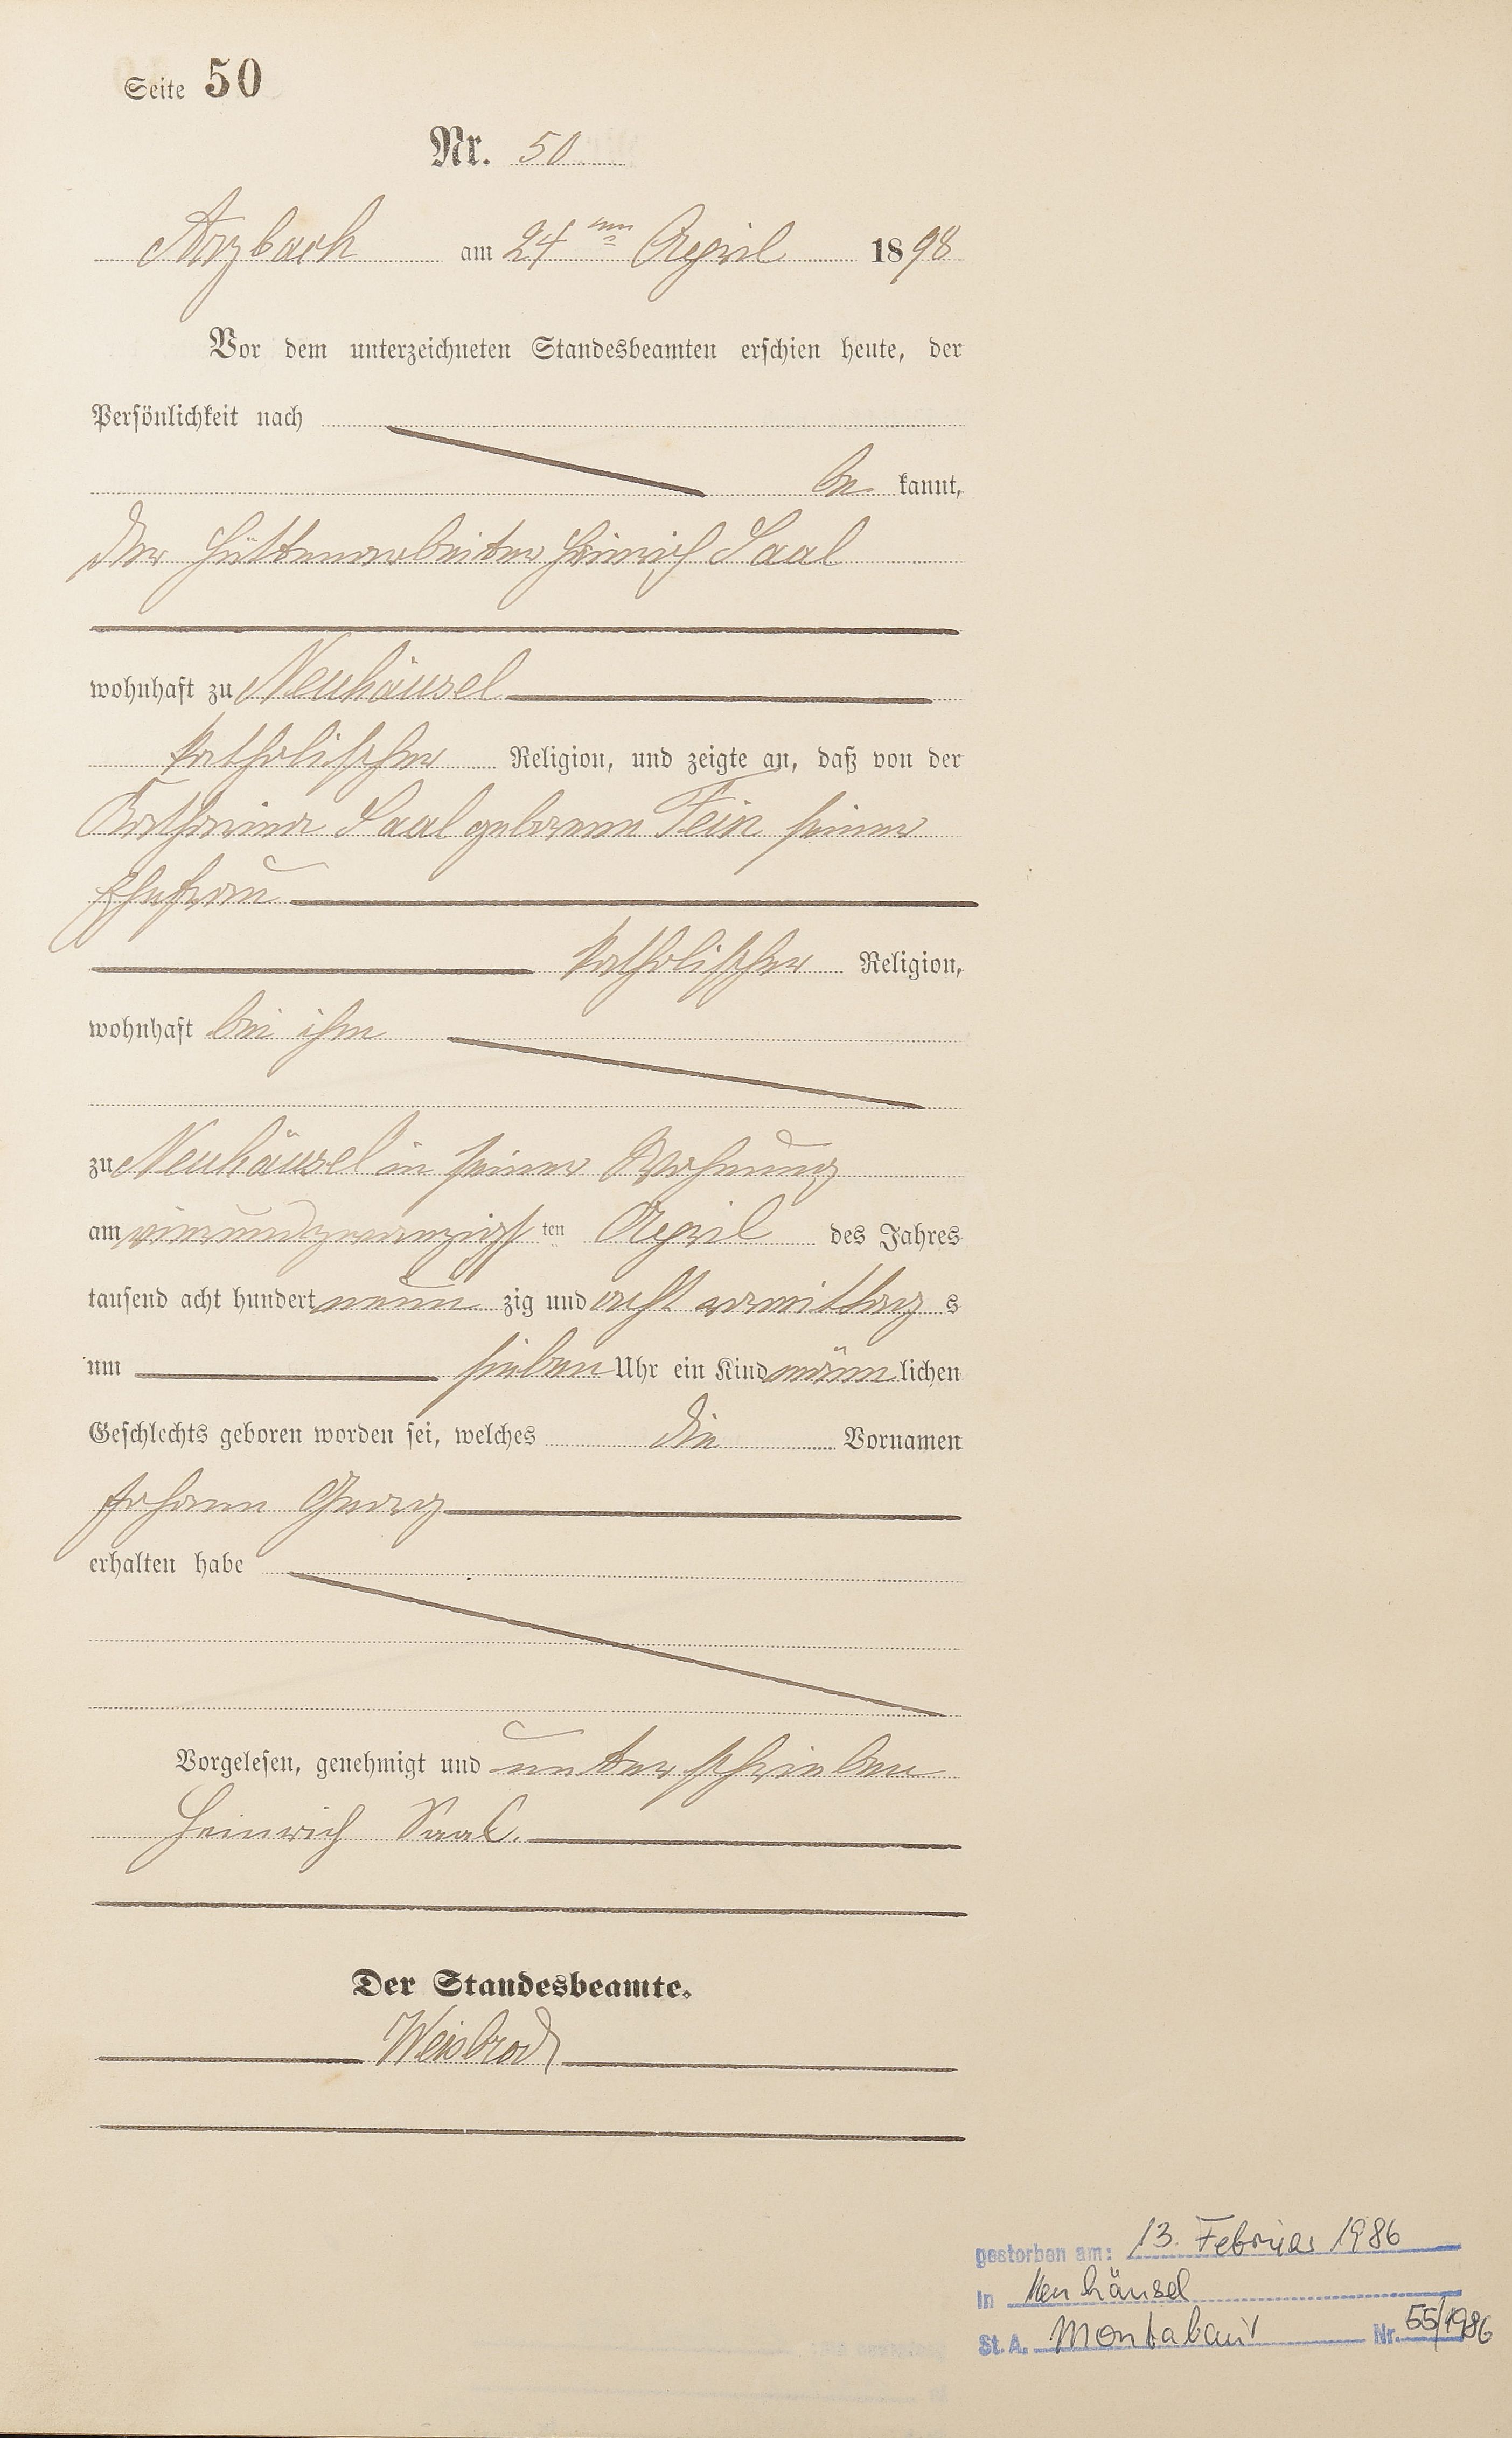 Seite 50
Nr. 50
Arzbach am 24ten April 1898
Vor dem unterzeichneten Standesbeamten erschien heute, der
Persönlichkeit nach
be kannt,
der Hüttenarbeiter Heinrich Saal
wohnhaft zu Neuhäusel
katholischer Religion, und zeigte an, daß von der
Katharina Saal geborene Fein seiner
Ehefrau
katholischer Religion,
wohnhaft bei ihm
zu Neuhäusel in seiner Wohnung
am vierundzwanzigsten April des Jahres
tausend acht hundert neun zig und acht vormittag s
um sieben Uhr ein Kind männ lichen
Geschlechts geboren worden sei, welches die Vornamen
Johann Georg
erhalten habe
Vorgelesen, genehmigt und unterschrieben
Heinrich Saal.
Der Standesbeamte.
Weisbrod
gestorben am: 13. Februar 1986
in Neuhäusel
St. A. Montabaur Nr. 55/1986